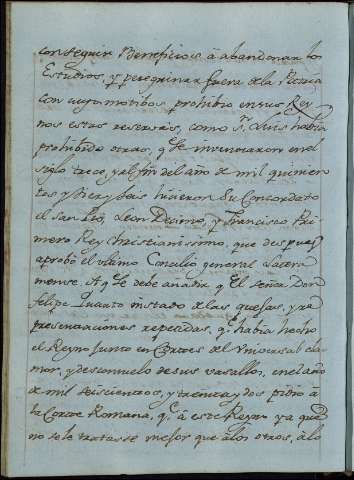 conseguir Beneficios â abandonar los
Estudios, y peregrinar fuera de la Patria
con cuyo motibos prohibio en sus Rey
nos estas reservas, como Sn. Luis habia
prohibido otras, qe. se inventaron en el
siglo trece, y al fin del año de mil quinien
tos y diez y seis hicieron Su Concordato
el San Leo, Leon Decimo, y Francisco Pri
mero Rey Christianissimo, que despues
aprobò el ultimo Concilio general Latera
nense. A qe. se debe anadir qe. El señor Don
felipe Quarto instado de las quejas, y re
presentaciones repetidas, qe. habia hecho
el Reyno junto en Cortes del Universal cla
mor, y desconsuelo de sus vasallos, en el año
de mil seiscientos, y treinta y dos pidio â
la Corte Romana, qe. â este Reyno ya que
no se le tratasse mejor que â los otros, â lo